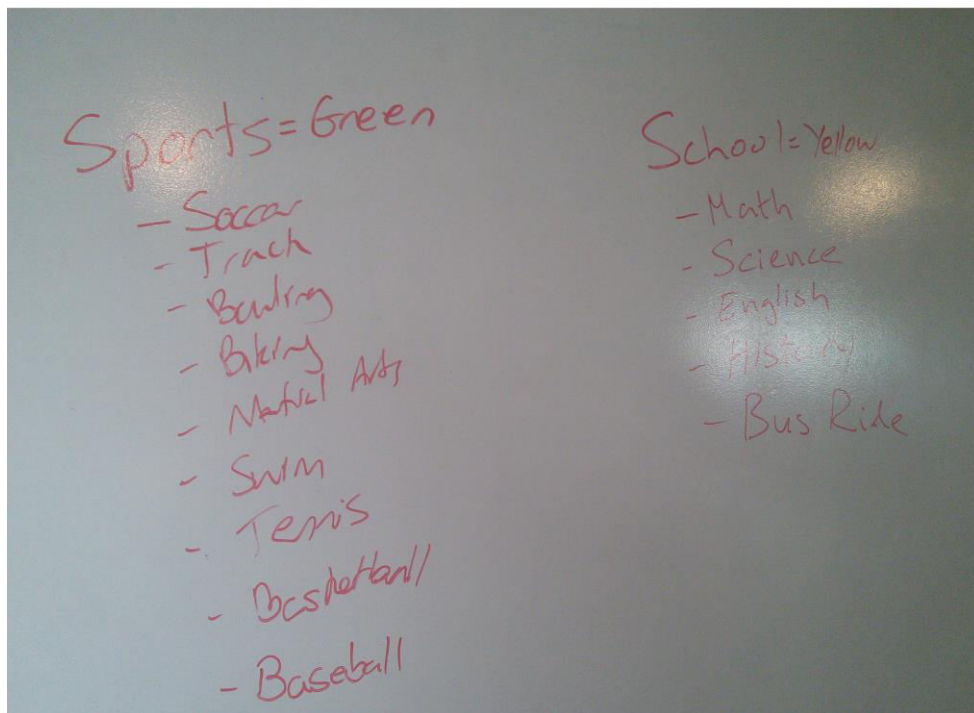 Sports = Green
- Soccar
- Track
- Bowling
- Biking
- Matrial Arts
- Swim
- Tennis
- Basketball
- Baseball
School = Yellow
- Math
- Science
- English
- History
- Bus Ride